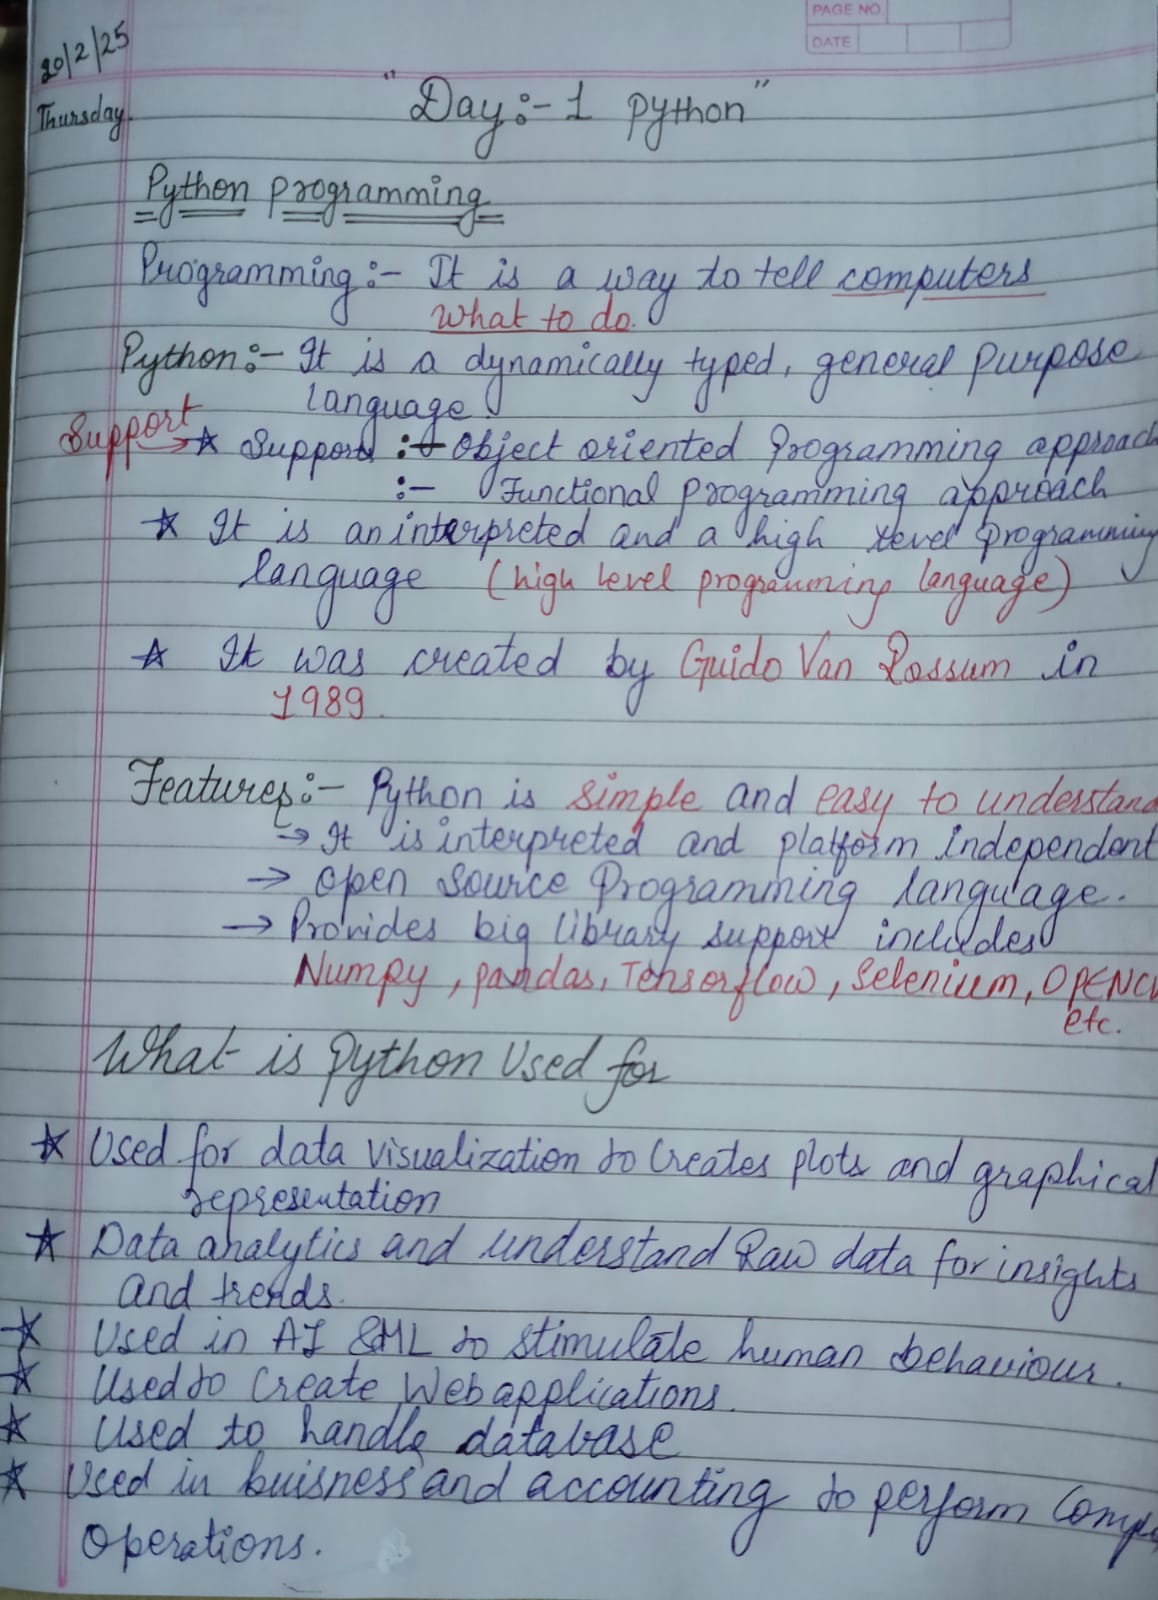 PAGE NO
DATE
20/2/25
Thursday
"Day:- 1 python"
Python programming
Programming:- It is a way to tell computers
what to do.
Python:- It is a dynamically typed, general purpose
language.
Support → ☆ Support :- Object oriented Programming approach
:- Functional programming approach
☆ It is an interpreted and a high level programming
language (high level programming language)
☆ It was created by Guido Van Rossum in
1989.
Features:- Python is simple and easy to understand
→ It is interpreted and platform independent
→ Open Source Programming language.
→ Provides big library support includes
Numpy, pandas, Tensorflow, Selenium, OPENCV
etc.
What is python Used for
☆ Used for data visualization to Creates plots and graphical
representation
☆ Data analytics and understand Raw data for insights
and trends.
☆ Used in AI & ML to stimulate human behaviour.
☆ Used to Create Web applications.
☆ Used to handle database
☆ Used in buisness and accounting to perform
Operations.